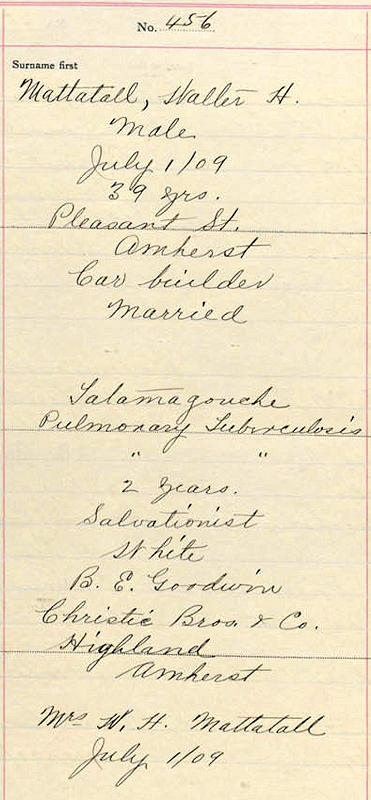 No. 456
Surname first
Mattatall, Walter H.
Male
July 1/09
39 yrs.
Pleasant St.
Amherst
Car builder
Married
Tatamagouche
Pulmonary Tuberculosis
" "
2 years.
Salvationist
White
B. E. Goodwin
Christie Bros. & Co.
Highland
Amherst
Mrs W. H. Mattatall
July 1/09